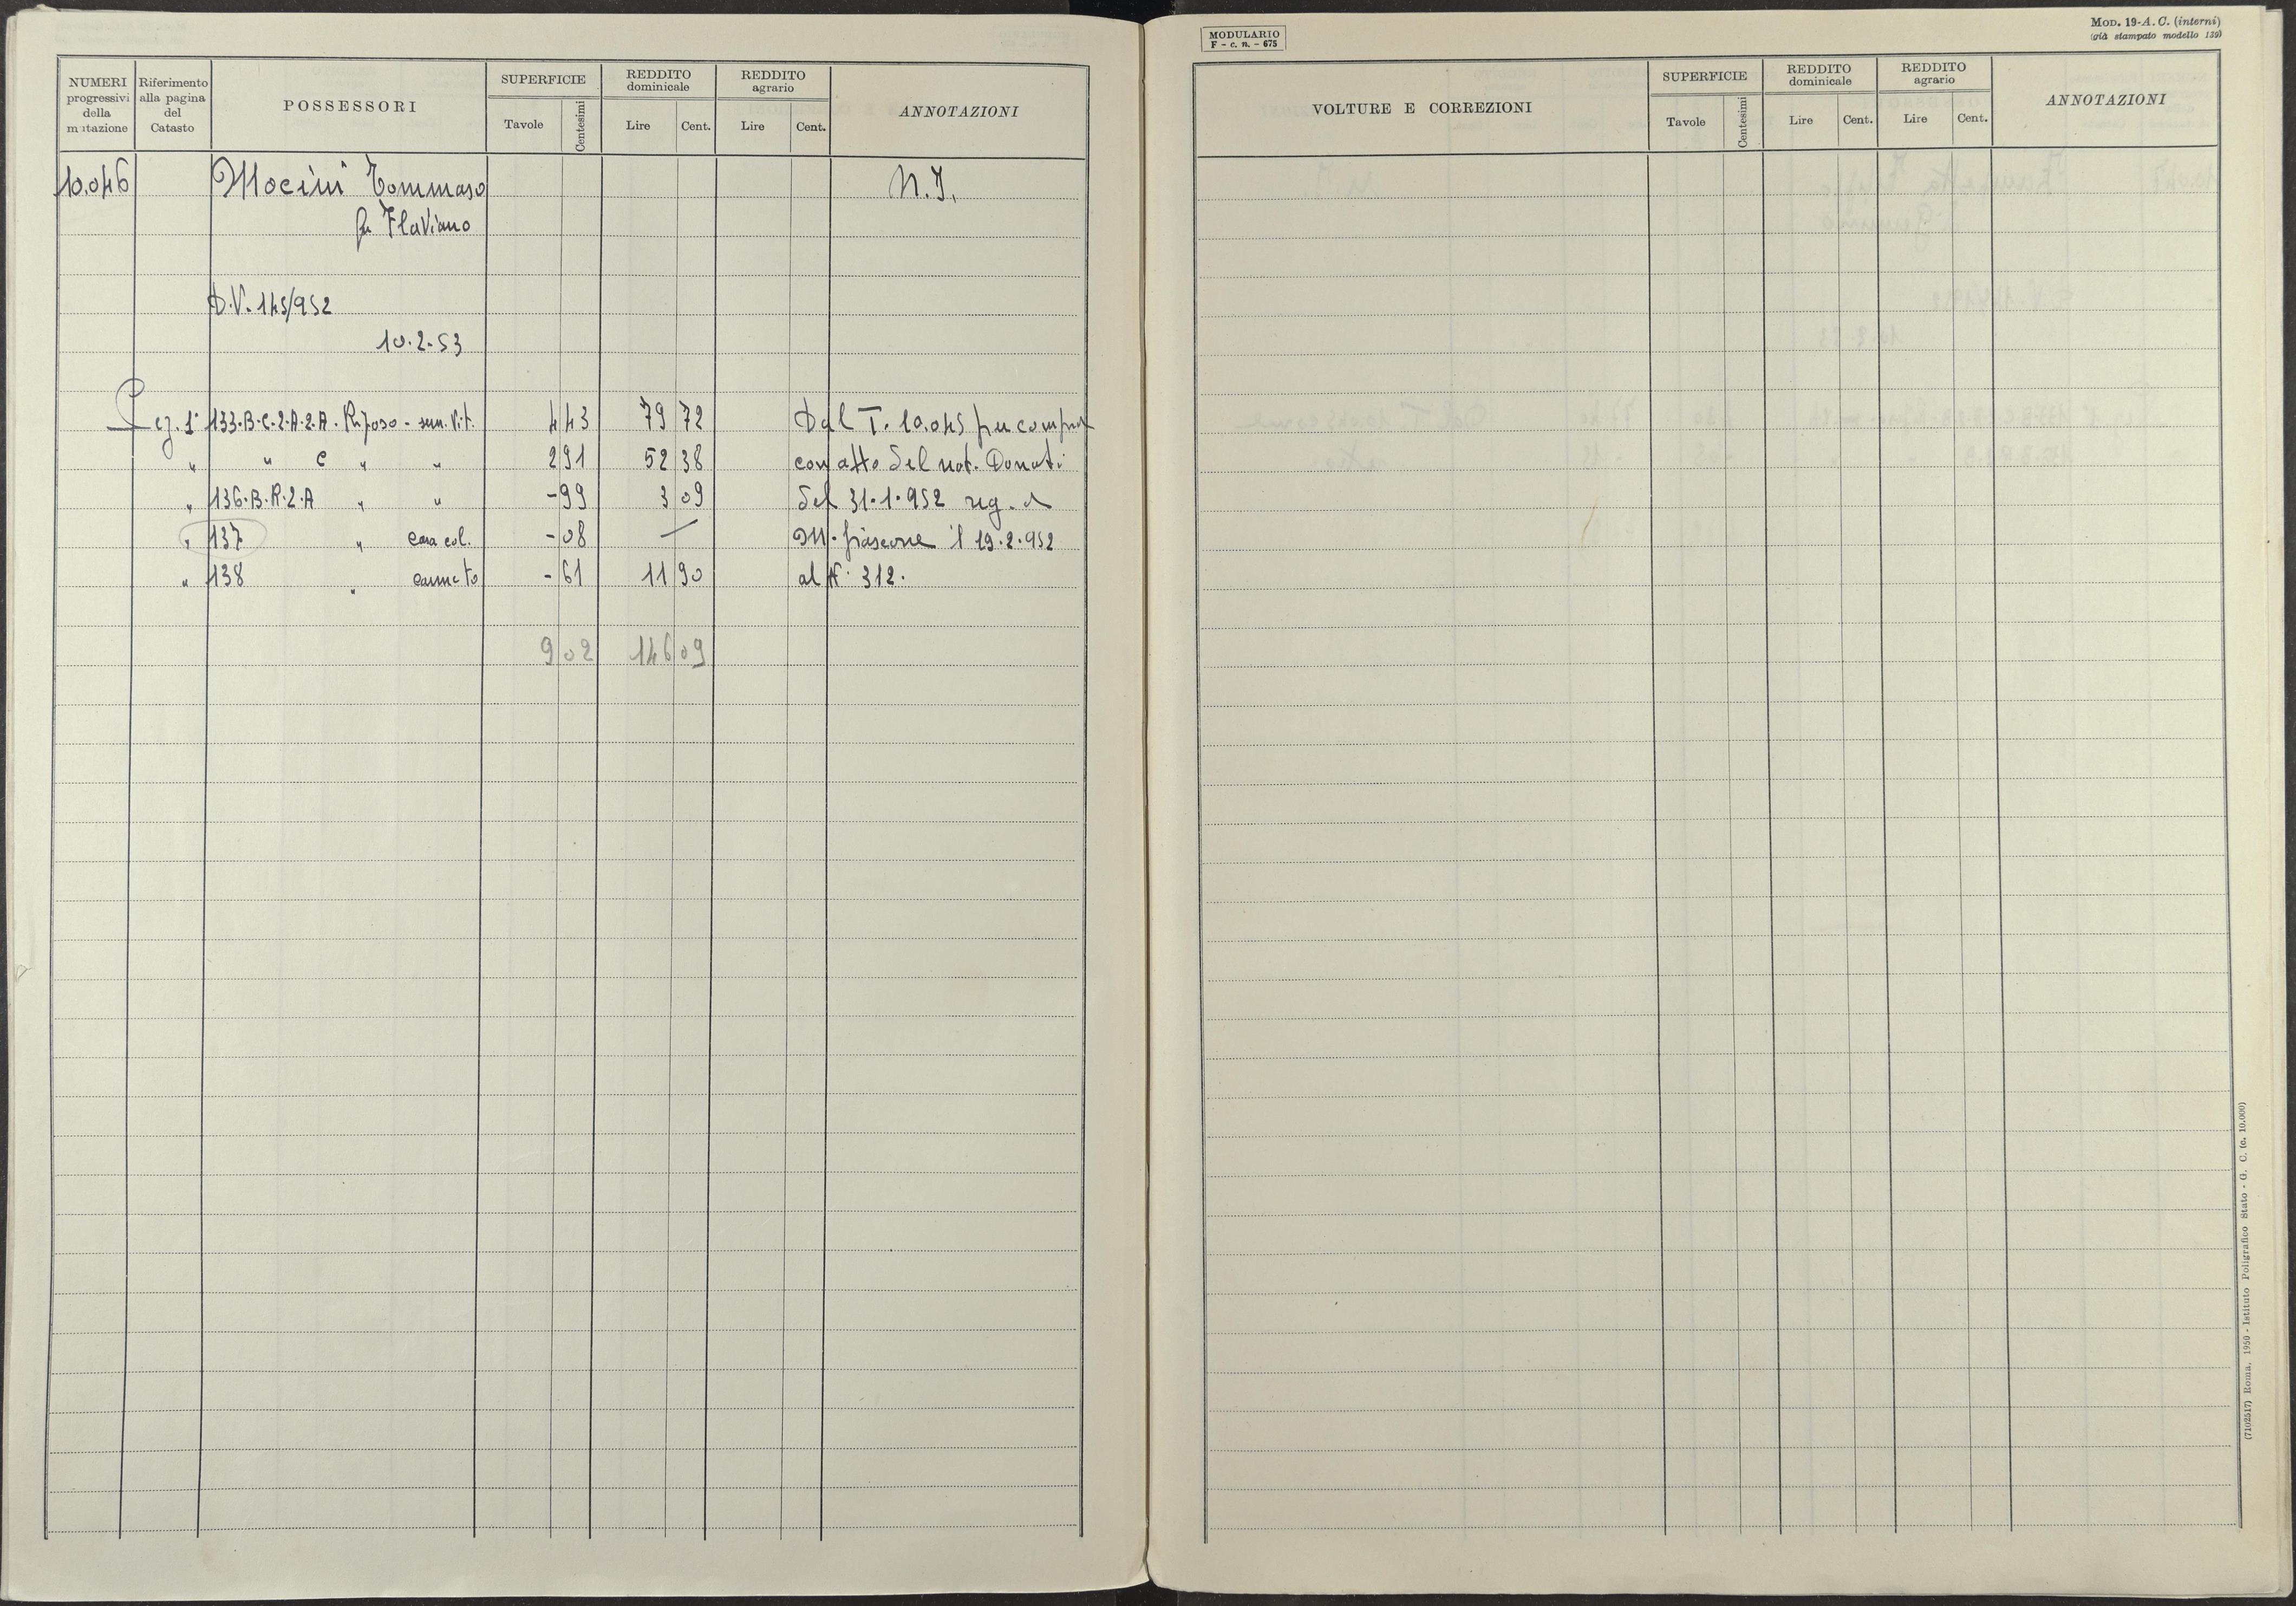 NUMERI progressivi della mutazione
Riferimento alla pagina del Catasto
POSSESSORI
SUPERFICIE
Tavole
Centesimi
REDDITO dominicale
Lire
Cent.
REDDITO agrario
Lire
Cent.
ANNOTAZIONI
10.046 Mocini Tommaso N.I.
fu Flaviano
D.V. 145/952
10.2.53
Sez. 1ª 133.B.C.2.A.2.A. Riposo - sem. vit. 4 43 79 72 Dal T. 10.045 per compra
" " C " " 2 91 52 38 con atto del not. Donati
" 136.B.R.2.A " " - 99 3 09 del 31.1.952 reg. a
" 137 " casa col. - 08 — M.fiascone il 19.2.952
" 138 " canneto - 61 11 90 al N. 312.
9 02 146 09
MODULARIO
F - c. n. - 675
MOD. 19-A. C. (interni)
(già stampato modello 139)
VOLTURE E CORREZIONI
SUPERFICIE
Tavole
Centesimi
REDDITO dominicale
Lire
Cent.
REDDITO agrario
Lire
Cent.
ANNOTAZIONI
(7102517) Roma, 1950 - Istituto Poligrafico Stato - G. C. (c. 10.000)